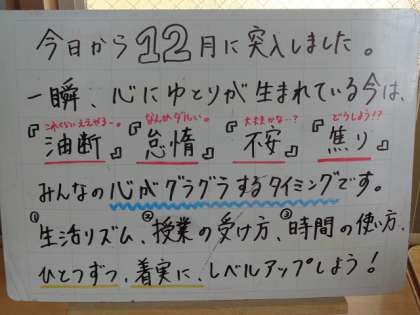 今日から12月に突入しました。
一瞬、心にゆとりが生まれている今は、
これくらいええやろ〜。 なんかダルい。 大丈夫かな…? どうしよう!?
『油断』『怠惰』『不安』『焦り』
みんなの心がグラグラするタイミングです。
①生活リズム、②授業の受け方、③時間の使い方、
ひとつずつ、着実に、レベルアップしよう!